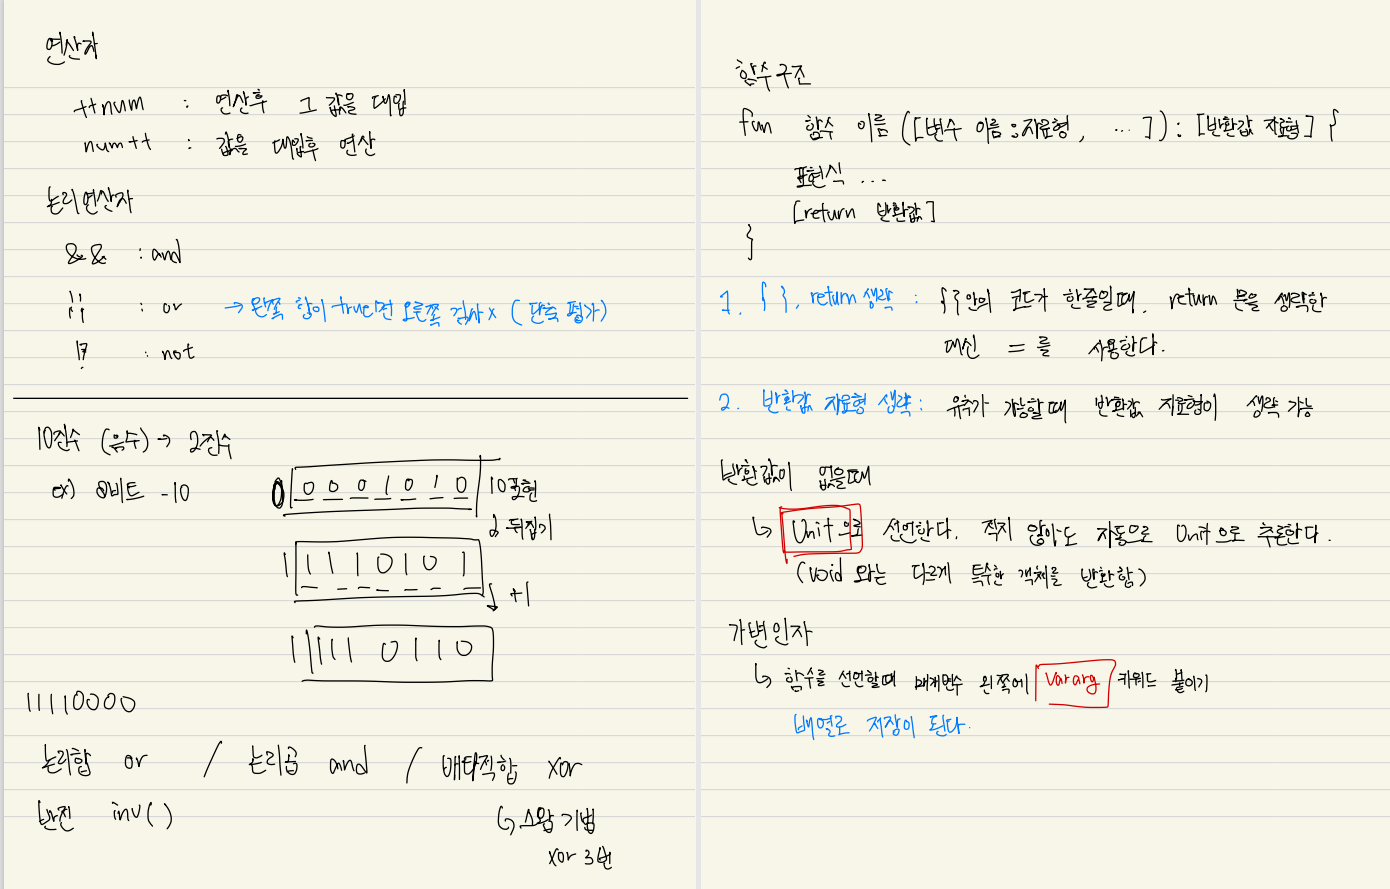 연산자
++num : 연산후 그 값을 대입
num++ : 값을 대입후 연산
논리연산자
&& : and
|| : or → 왼쪽 항이 true면 오른쪽 검사 x (단축 평가)
!? : not
10진수 (음수) → 2진수
ex) 8비트 -10
0 0 0 0 1 0 1 0 10 표현
↓ 뒤집기
1 1 1 1 0 1 0 1
↓ +1
1 1 1 1 0 1 1 0
11110000
논리합 or / 논리곱 and / 배타적합 xor
반전 inv( )
↳ 스왑 기법
xor 3번
함수구조
fun 함수 이름 ([변수 이름 : 자료형, ... ]) : [반환값 자료형] {
표현식 ...
[return 반환값]
}
1. { }, return 생략 : { } 안의 코드가 한줄일때, return 문을 생략한
대신 = 를 사용한다.
2. 반환값 자료형 생략 : 유추가 가능할때 반환값 자료형이 생략 가능
반환값이 없을때
↳ Unit으로 선언한다. 적지 않아도 자동으로 Unit으로 추론한다.
(void 와는 다르게 특수한 객체를 반환함)
가변인자
↳ 함수를 선언할때 매개변수 왼쪽에 vararg 키워드 붙이기
배열로 저장이 된다.